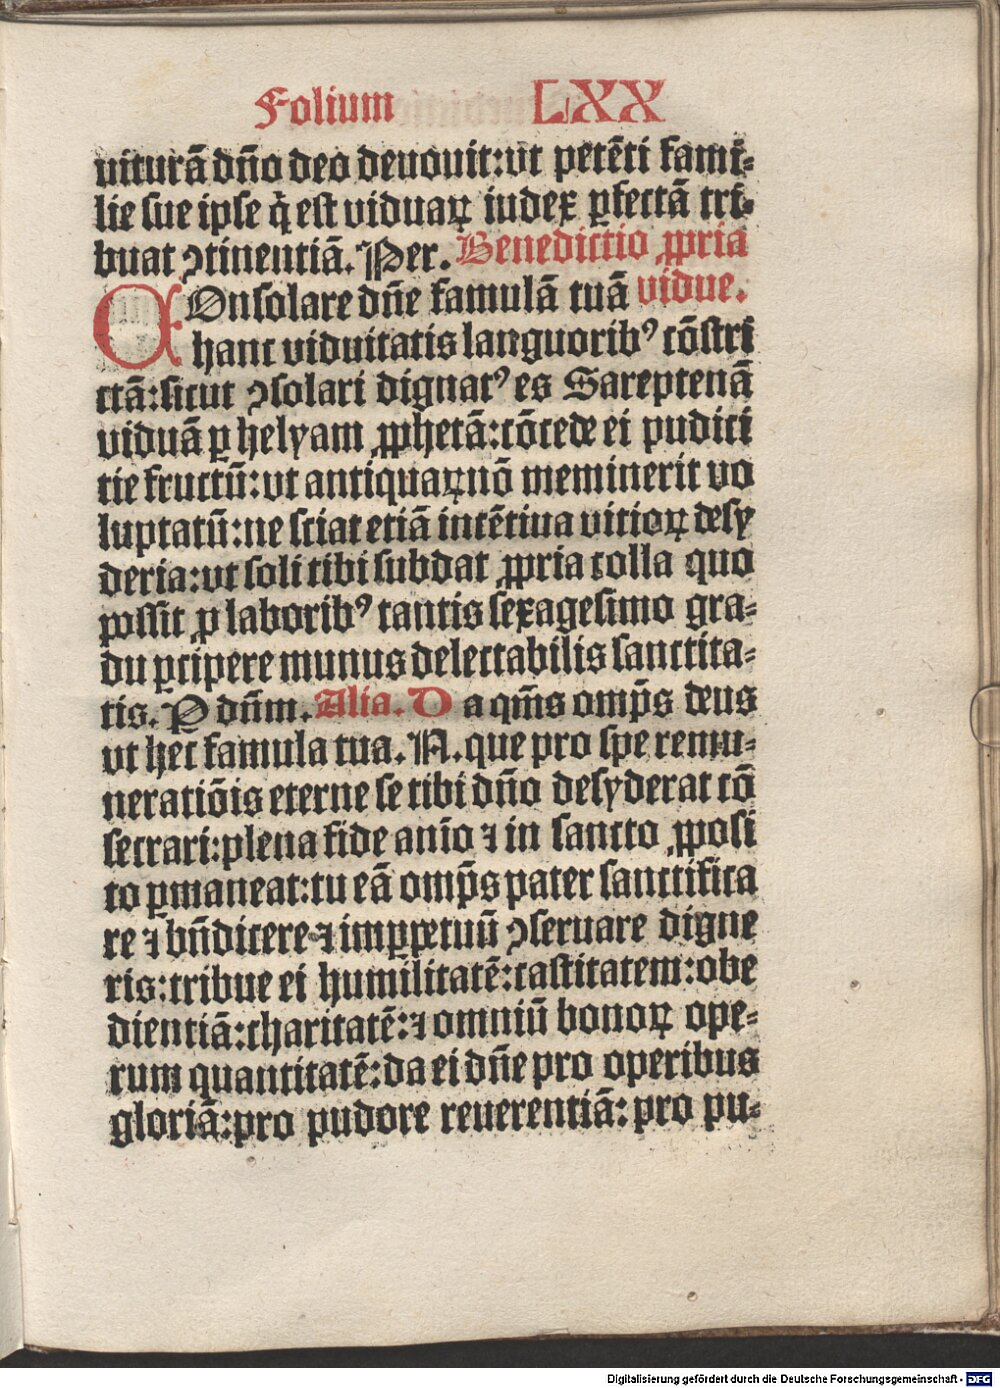 Folium LXX
uiturã dño deo deuouit:vt petẽti fami⸗
lie sue ipse q̇ est viduaꝝ iudex ꝑfectã tri⸗
buat ↄtinentiã. Per. Benedictio ꝓpria
COnsolare dñe famulã tuã vidue.
hanc viduitatis languorib⁹ cõstri
ctã:sicut ↄsolari dignat⁹ es Sareptenã
viduã ꝑ helyam ꝓphetã:cõcede ei pudici
tie fructũ:vt antiquaꝝ nõ meminerit vo
luptatũ:ne sciat etiã incẽtiua vitioꝝ desy
deria:vt soli tibi subdat ꝓpria colla quo
possit ꝓ laborib⁹ tantis sexagesimo gra⸗
du ꝑcipere munus delectabilis sanctita⸗
tis. P dñm. Alia. Da qm̃s omp̃s deus
vt hec famula tua. N. que pro spe remu⸗
neratiõis eterne se tibi dño desyderat cõ
secrari:plena fide anĩo ⁊ in sancto ꝓposi
to ꝑmaneat:tu eã omp̃s pater sanctifica
re ⁊ bñdicere ⁊ imꝑpetuũ ↄseruare digne
ris:tribue ei humilitatẽ:castitatem:obe
dientiã:charitatẽ:⁊ omniũ bonoꝝ ope⸗
rum quantitatẽ:da ei dñe pro operibus
gloriã:pro pudore reuerentiã:pro pu⸗
Digitalisierung gefördert durch die Deutsche Forschungsgemeinschaft - DFG